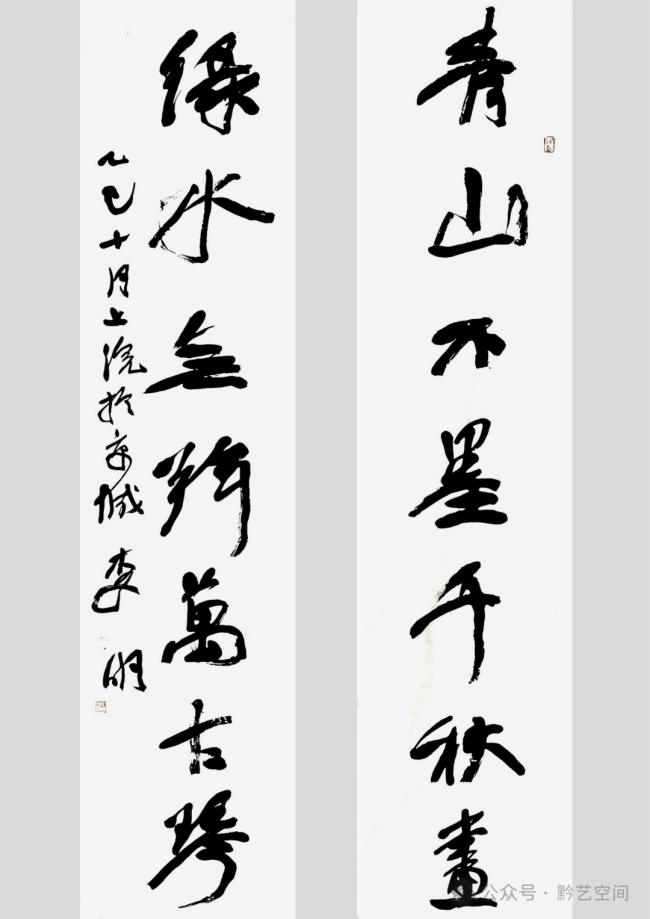 青山不墨千秋畫
緑水無弦萬古琴
乙巳十月上浣於京城 李明
公众号 · 黔艺空间